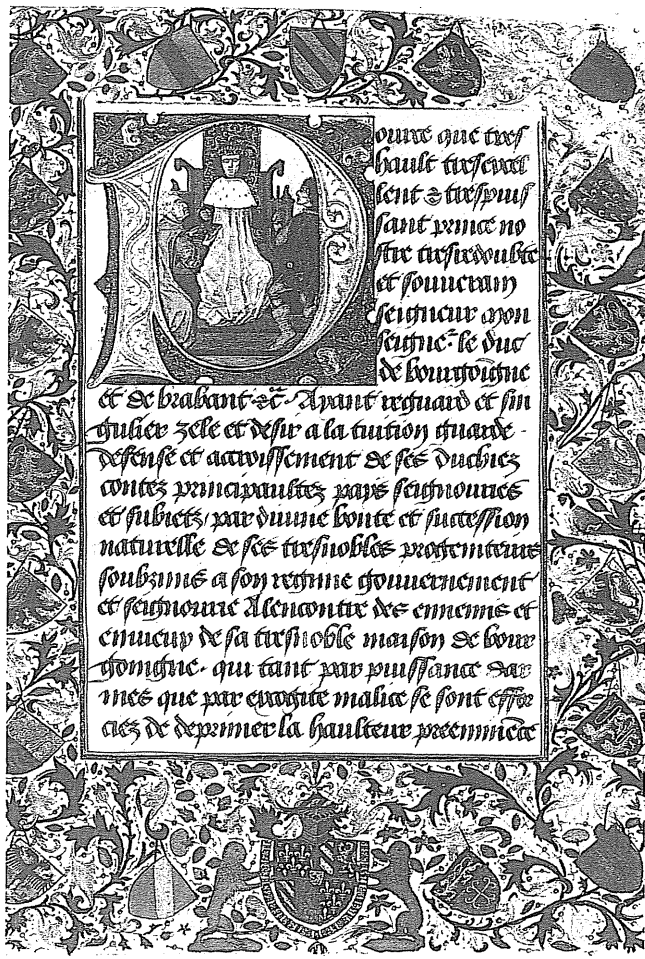 Pource que tres
hault tresexcel
lent & trespuis
sant prince no
stre tresredoubte
et souverain
seigneur mon
seigne.r le duc
de bourgoingne
et de brabant &c.̃ Ayant reguard et sin
gulier zele et desir a la tuition guarde
defense et accroissement de ses duchiez
contez principaultez pays seignouries
et subietz, par diuine bonte et succession
naturelle de ses tresnobles progeniteurs
soubzmis a son regime gouuernement
et seignourie Alencontre des ennemis et
enuieux de sa tresnoble maison de bour
goingne. qui tant par puissance dar
mes que par excogite malice se sont effor
ciez de deprimer la haulteur preeminẽce